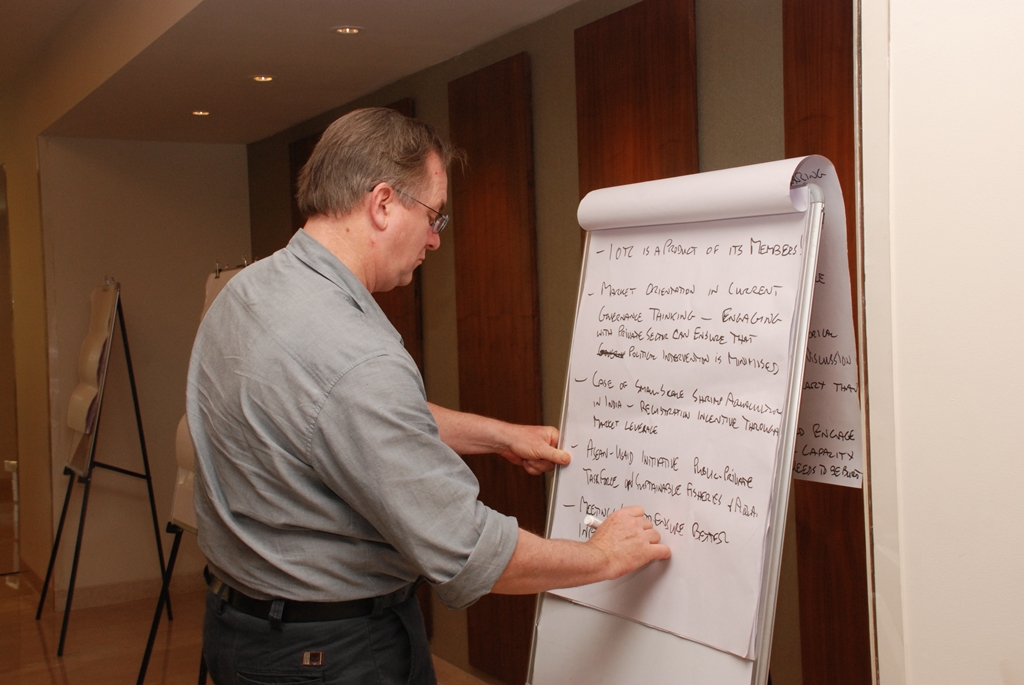 - IOTC IS A PRODUCT OF ITS MEMBERS!
- MARKET ORIENTATION IN CURRENT
GOVERNANCE THINKING - ENGAGING
WITH PRIVATE SECTOR CAN ENSURE THAT
POLITICAL INTERVENTION IS MINIMISED
- CASE OF SMALL SCALE SHRIMP AQUACULTURE
IN INDIA - REGISTRATION INCENTIVE THROUGH
MARKET LEVERAGE
- ASEAN- INITIATIVE PUBLIC-PRIVATE
TASKFORCE ON SUSTAINABLE FISHERIES & AQUA.
- MEETING ENSURE BETTER
INTE
ERING
LE
ORICAL
DISCUSSION
THAN
ENGAGE
CAPACITY
NEEDS TO BE BUILT